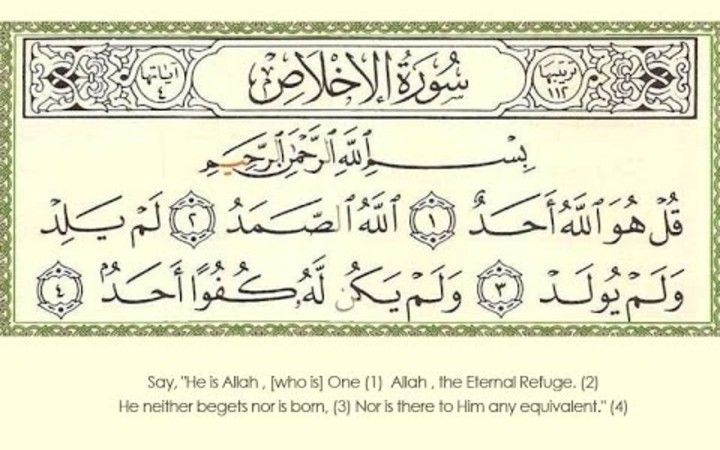 ترتيبها ١١٢ سُورَةُ الإِخْلَاصِ آياتها ٤
بِسْمِ اللَّهِ الرَّحْمَٰنِ الرَّحِيمِ
قُلْ هُوَ اللَّهُ أَحَدٌ ١ اللَّهُ الصَّمَدُ ٢ لَمْ يَلِدْ
وَلَمْ يُولَدْ ٣ وَلَمْ يَكُن لَّهُ كُفُوًا أَحَدٌ ٤
Say, "He is Allah , [who is] One (1) Allah , the Eternal Refuge. (2)
He neither begets nor is born, (3) Nor is there to Him any equivalent." (4)